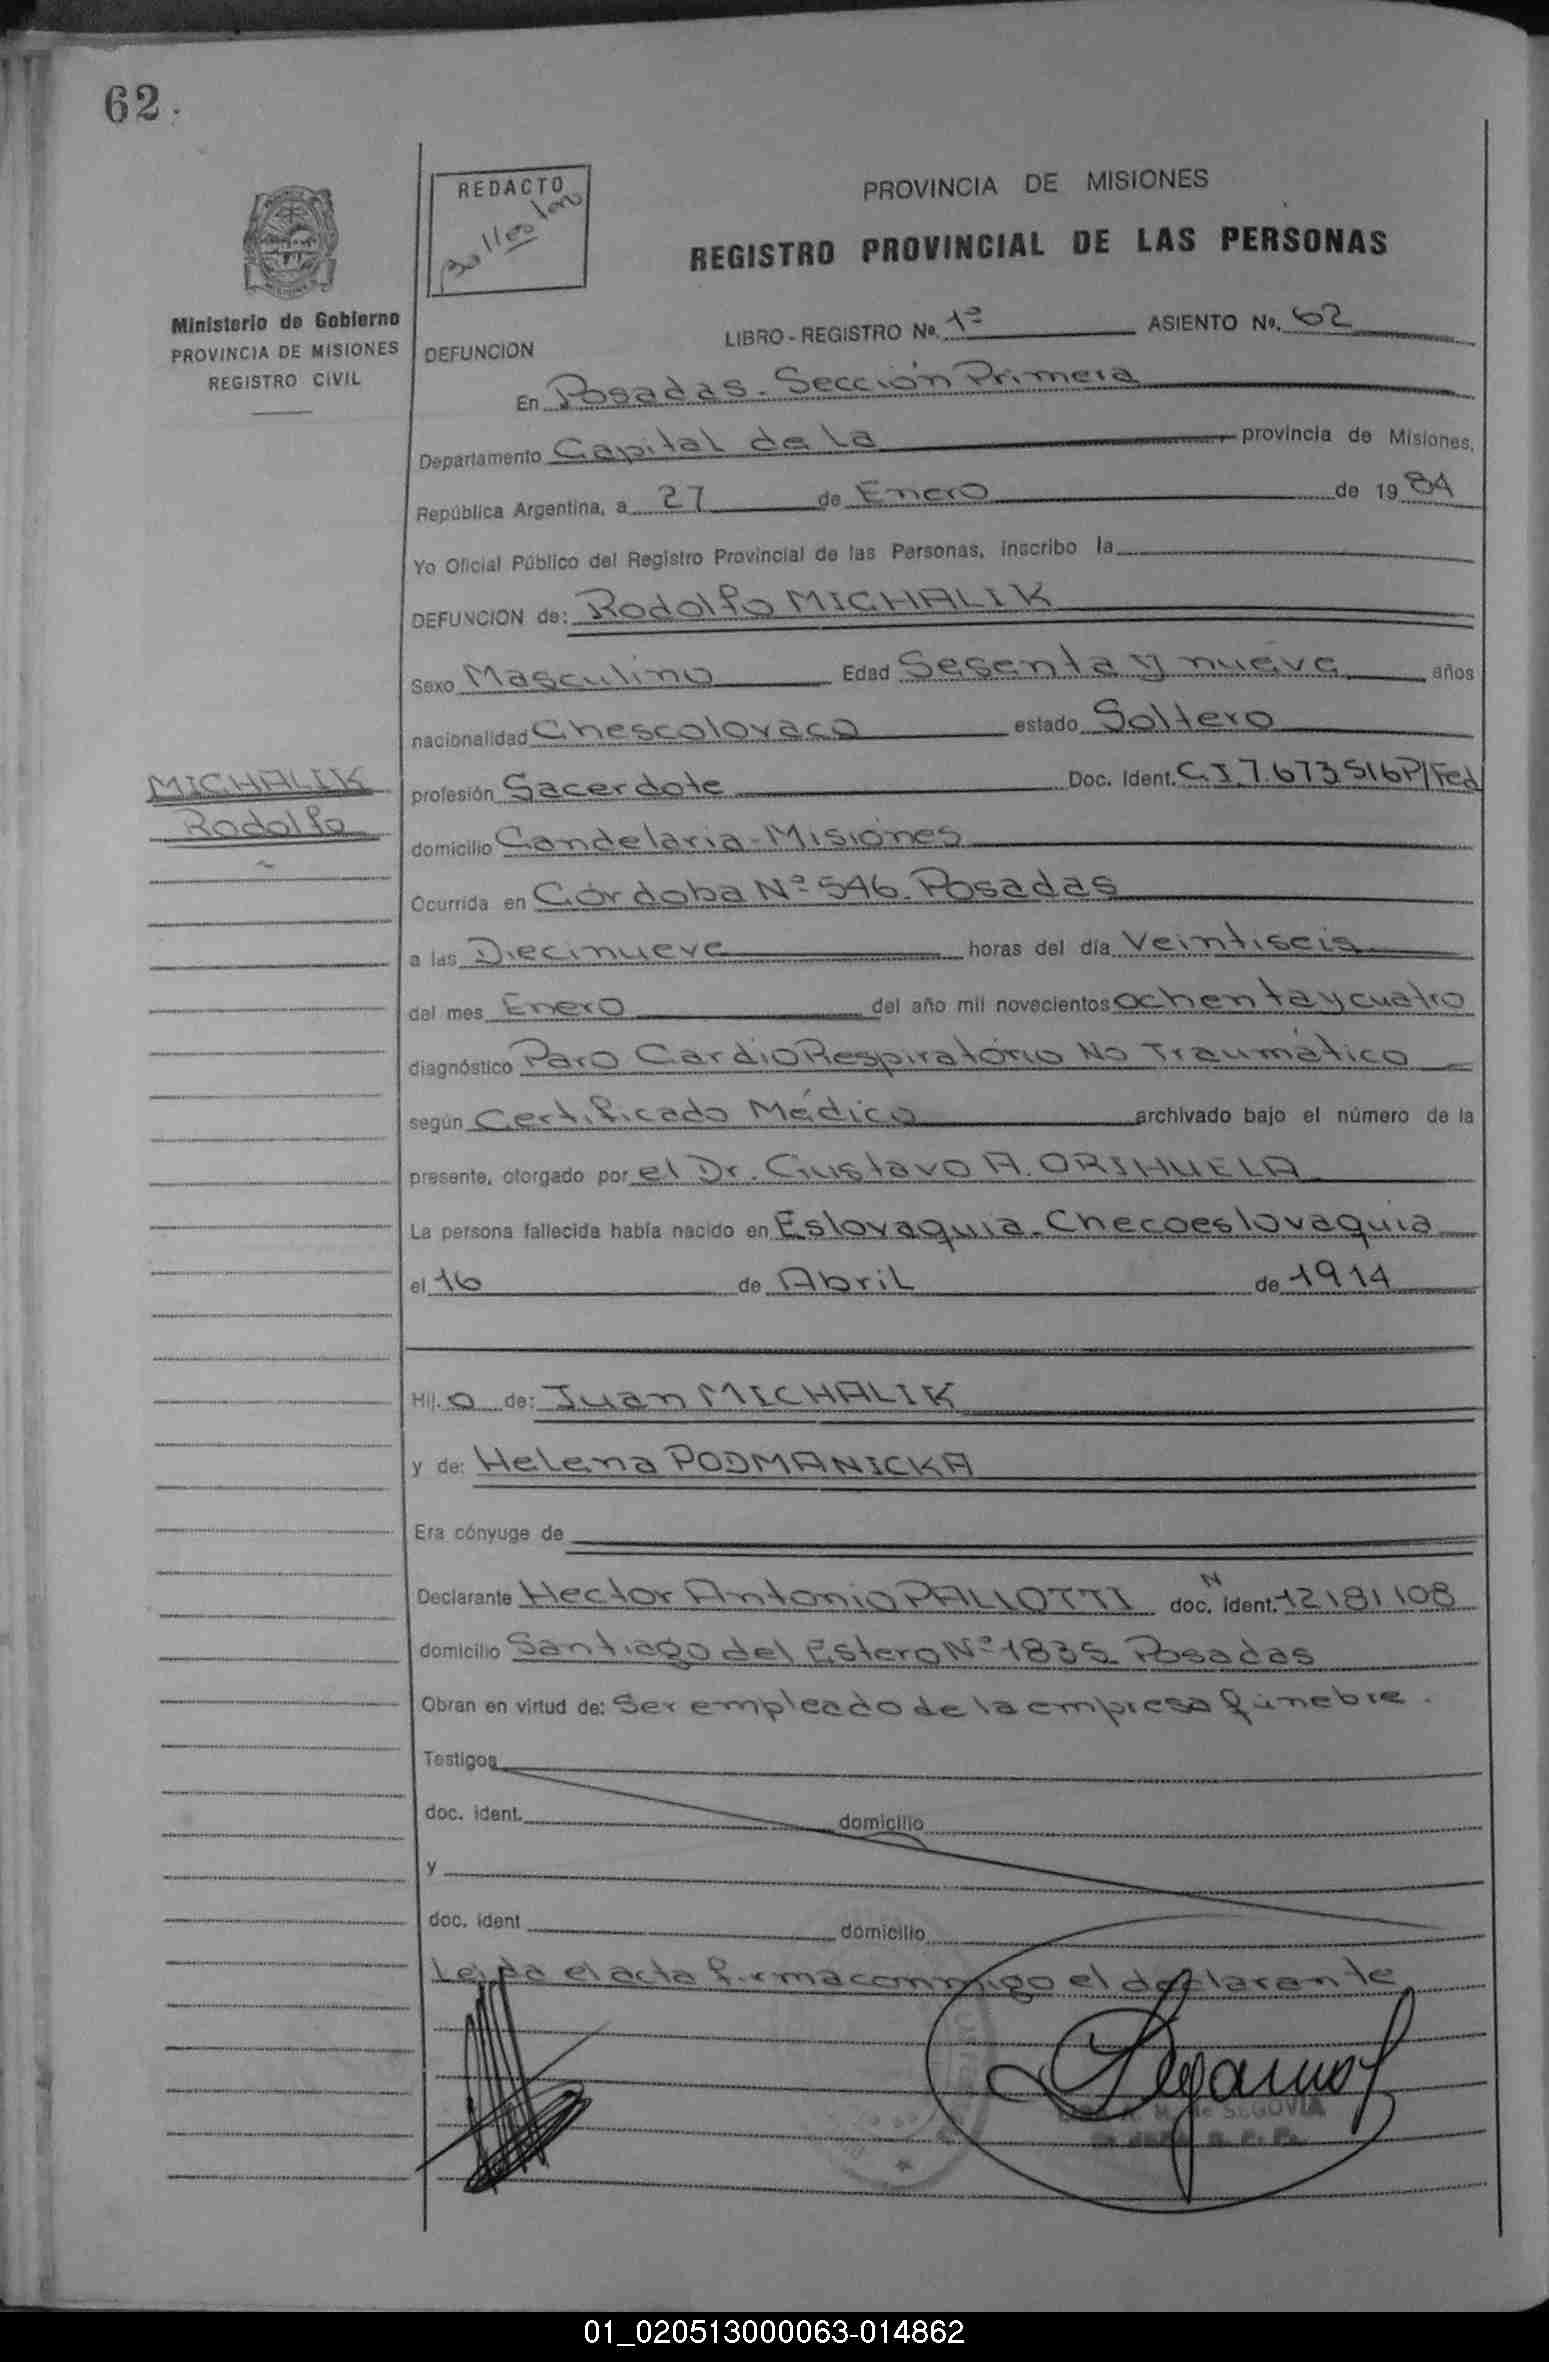 62.
REDACTO
PROVINCIA DE MISIONES
REGISTRO PROVINCIAL DE LAS PERSONAS
Ministerio de Gobierno
PROVINCIA DE MISIONES
REGISTRO CIVIL
LIBRO - REGISTRO No. 1º ASIENTO No. 62
DEFUNCION
En Posadas. Sección Primera
Departamento Capital de la provincia de Misiones,
República Argentina, a 27 de Enero de 1984
Yo Oficial Público del Registro Provincial de las Personas, inscribo la
DEFUNCION de: Rodolfo MICHALIK
Sexo Masculino Edad Sesenta y nueve años
nacionalidad Chescolovaco estado Soltero
MICHALIK
Rodolfo
profesión Sacerdote Doc. Ident. C.I 7.673516P/Fed
domicilio Candelaria-Misiones
Ocurrida en Córdoba Nº 546. Posadas
a las Diecinueve horas del día Veintiseis
del mes Enero del año mil novecientos ochenta y cuatro
diagnóstico Paro CardioRespiratório No Traumático
según Certificado Médico archivado bajo el número de la
presente, otorgado por el Dr. Gustavo A. ORIHUELA
La persona fallecida había nacido en Eslovaquia-Checoeslovaquia
el 16 de Abril de 1914
Hij.o de: Juan MICHALIK
y de: Helena PODMANICKA
Era cónyuge de
Declarante Hector Antonio PALLOTTI doc. N ident. 12181108
domicilio Santiago del Estero Nº 1835 Posadas
Obran en virtud de: Ser empleado de la empresa fúnebre.
Testigos
doc. ident. domicilio
y
doc. ident domicilio
Leída el acta firma conmigo el declarante
M. de SEGOVIA
01_020513000063-014862